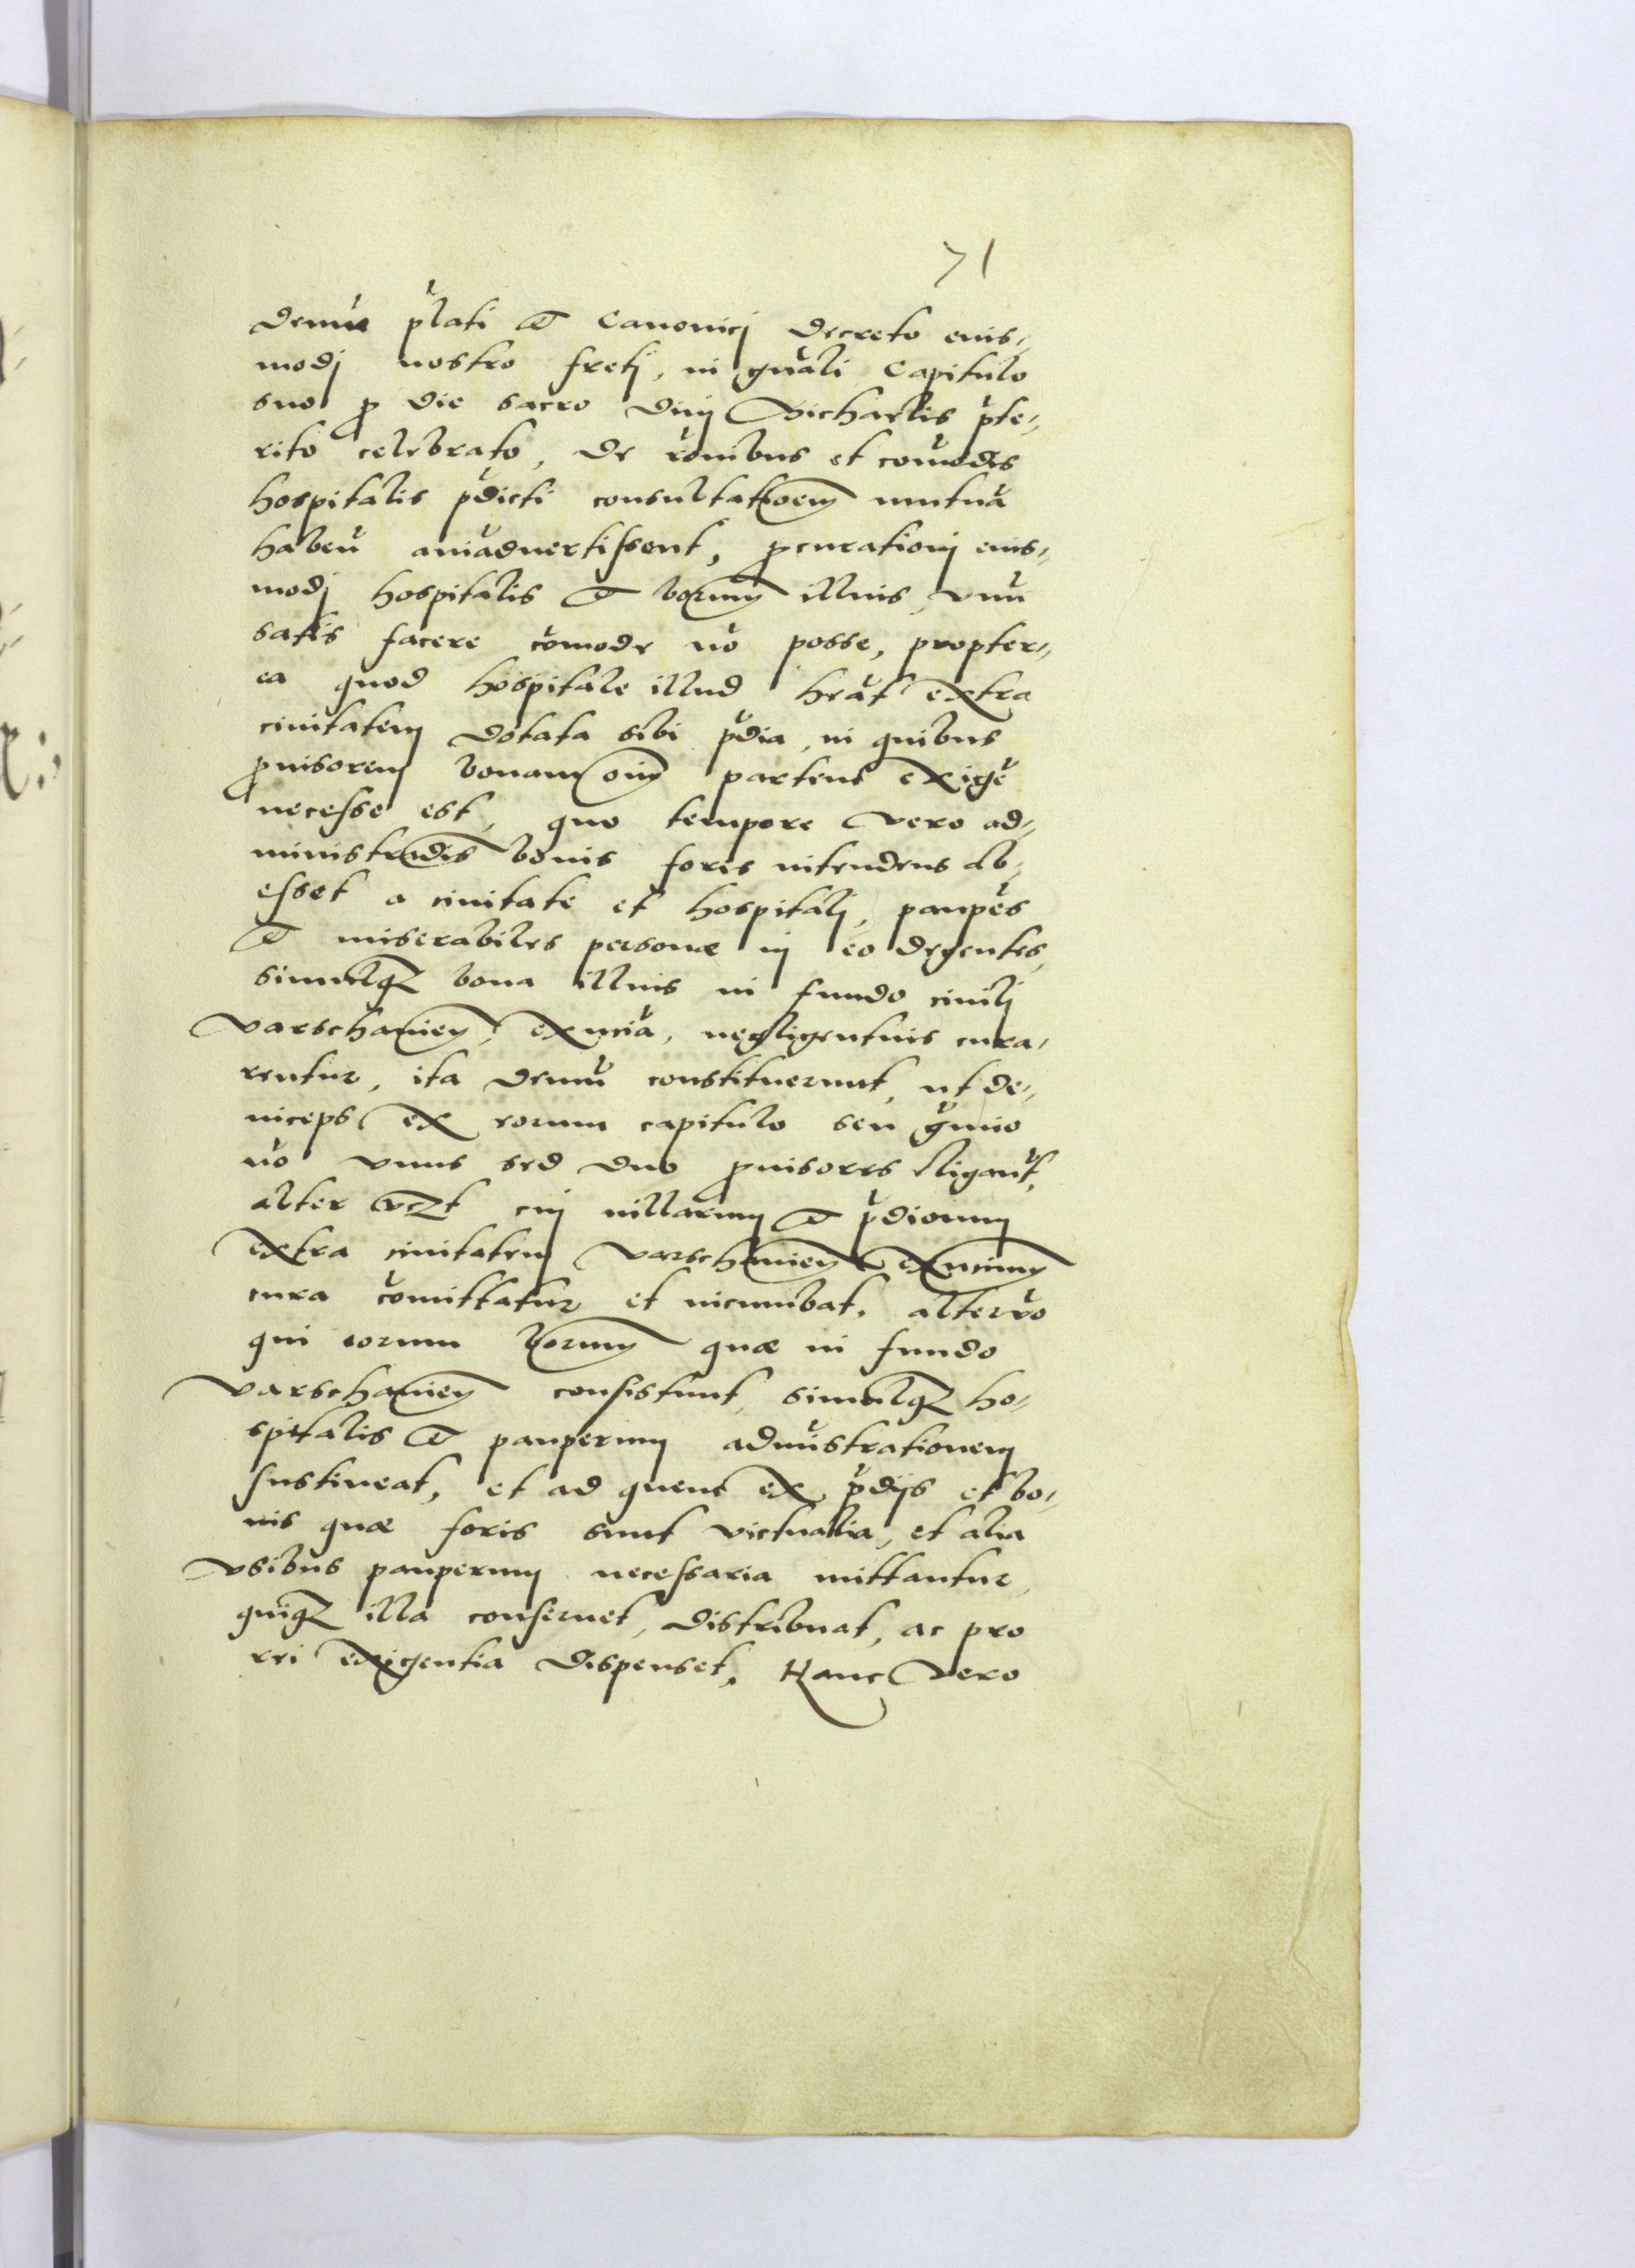 71
demū p̄lati et Canonicj decreto euis⸗
modj nostro fretj, in gn̄ali Capitulo
suo ꝓ die sacro diuj Michaelis p̄te⸗
rito celebrato, de r̄onibus et com̄odis
hospitalis p̄dicti consultatioem mutuā
haben̄ aīaduertissent, ꝓcurationj euis⸗
modj hospitalis et bonorum illius vnū
satis facere com̄ode nō posse, propter⸗
ea quod hospitale illud heāt extra
ciuitatem dotata sibi p̄dia, in quibus
ꝓuisorem bonam oīm partem exigē
necesse est, quo tempore vero ad⸗
ministrandis bonis foris intendens ab
esset a ciuitate et hospitalj, paupēs
et miserabiles personæ in eo degentes,
simulqꝫ bona illius in fundo ciuilj
varschauien̄ exn̄cia, negligentius cura⸗
rentur, ita demū constituerunt, ut de⸗
inceps ex eorum capitulo seu gr̄mio
nō vnus sed duo ꝓuisores eligant̄,
alter vꝫt cuj uillarum et p̄diorum
extra ciuitatem varschauien̄ exn̄cium
cura com̄ittatur et incumbat, alter vō
qui eorum bonorum quæ in fundo
varschauien̄ consistunt, simulqꝫ ho⸗
spitalis et pauperum admīstrationem
sustineat, et ad quem ex p̄dijs et bo⸗
nis quæ foris sunt victualia, et alia
vsibus pauperum necessaria mittantur,
quiqꝫ illa conseruet, distribuat, ac pro
rei exigentia dispenset. Hanc vero